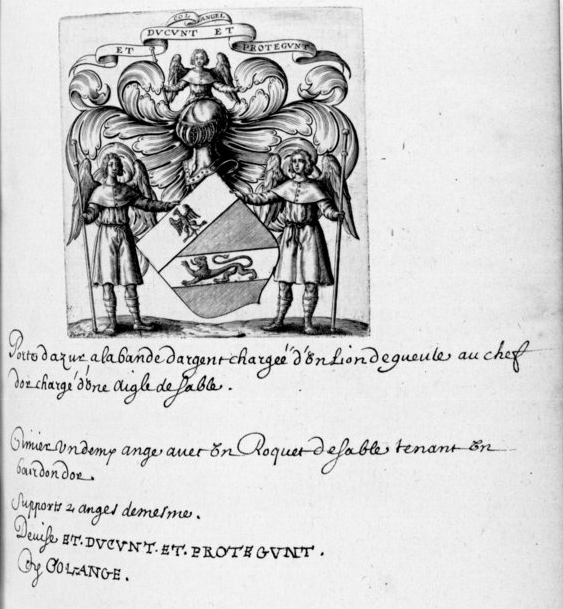 COL ANGEL
DVCVNT ET
ET PROTEGVNT
Porte d'azur a la bande d'argent chargeé d'ũn Lion de gueule au chef
dor chargé d'ũne aigle de sable.
Cimier Vn demy ange auec ũn Roquet de sable tenant ũn
bourdon dor.
Supports 2 anges demesme.
Deuise ET. DVCVNT. ET. PROTEGVNT.
Cry COL-ANGE.